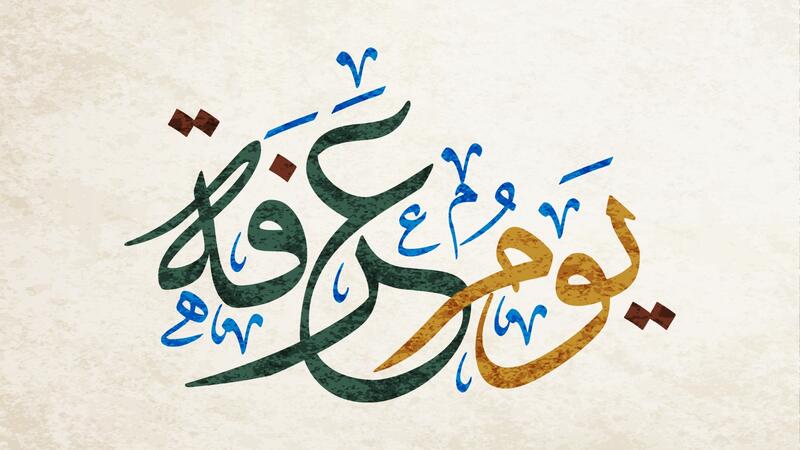 يوم عرفة